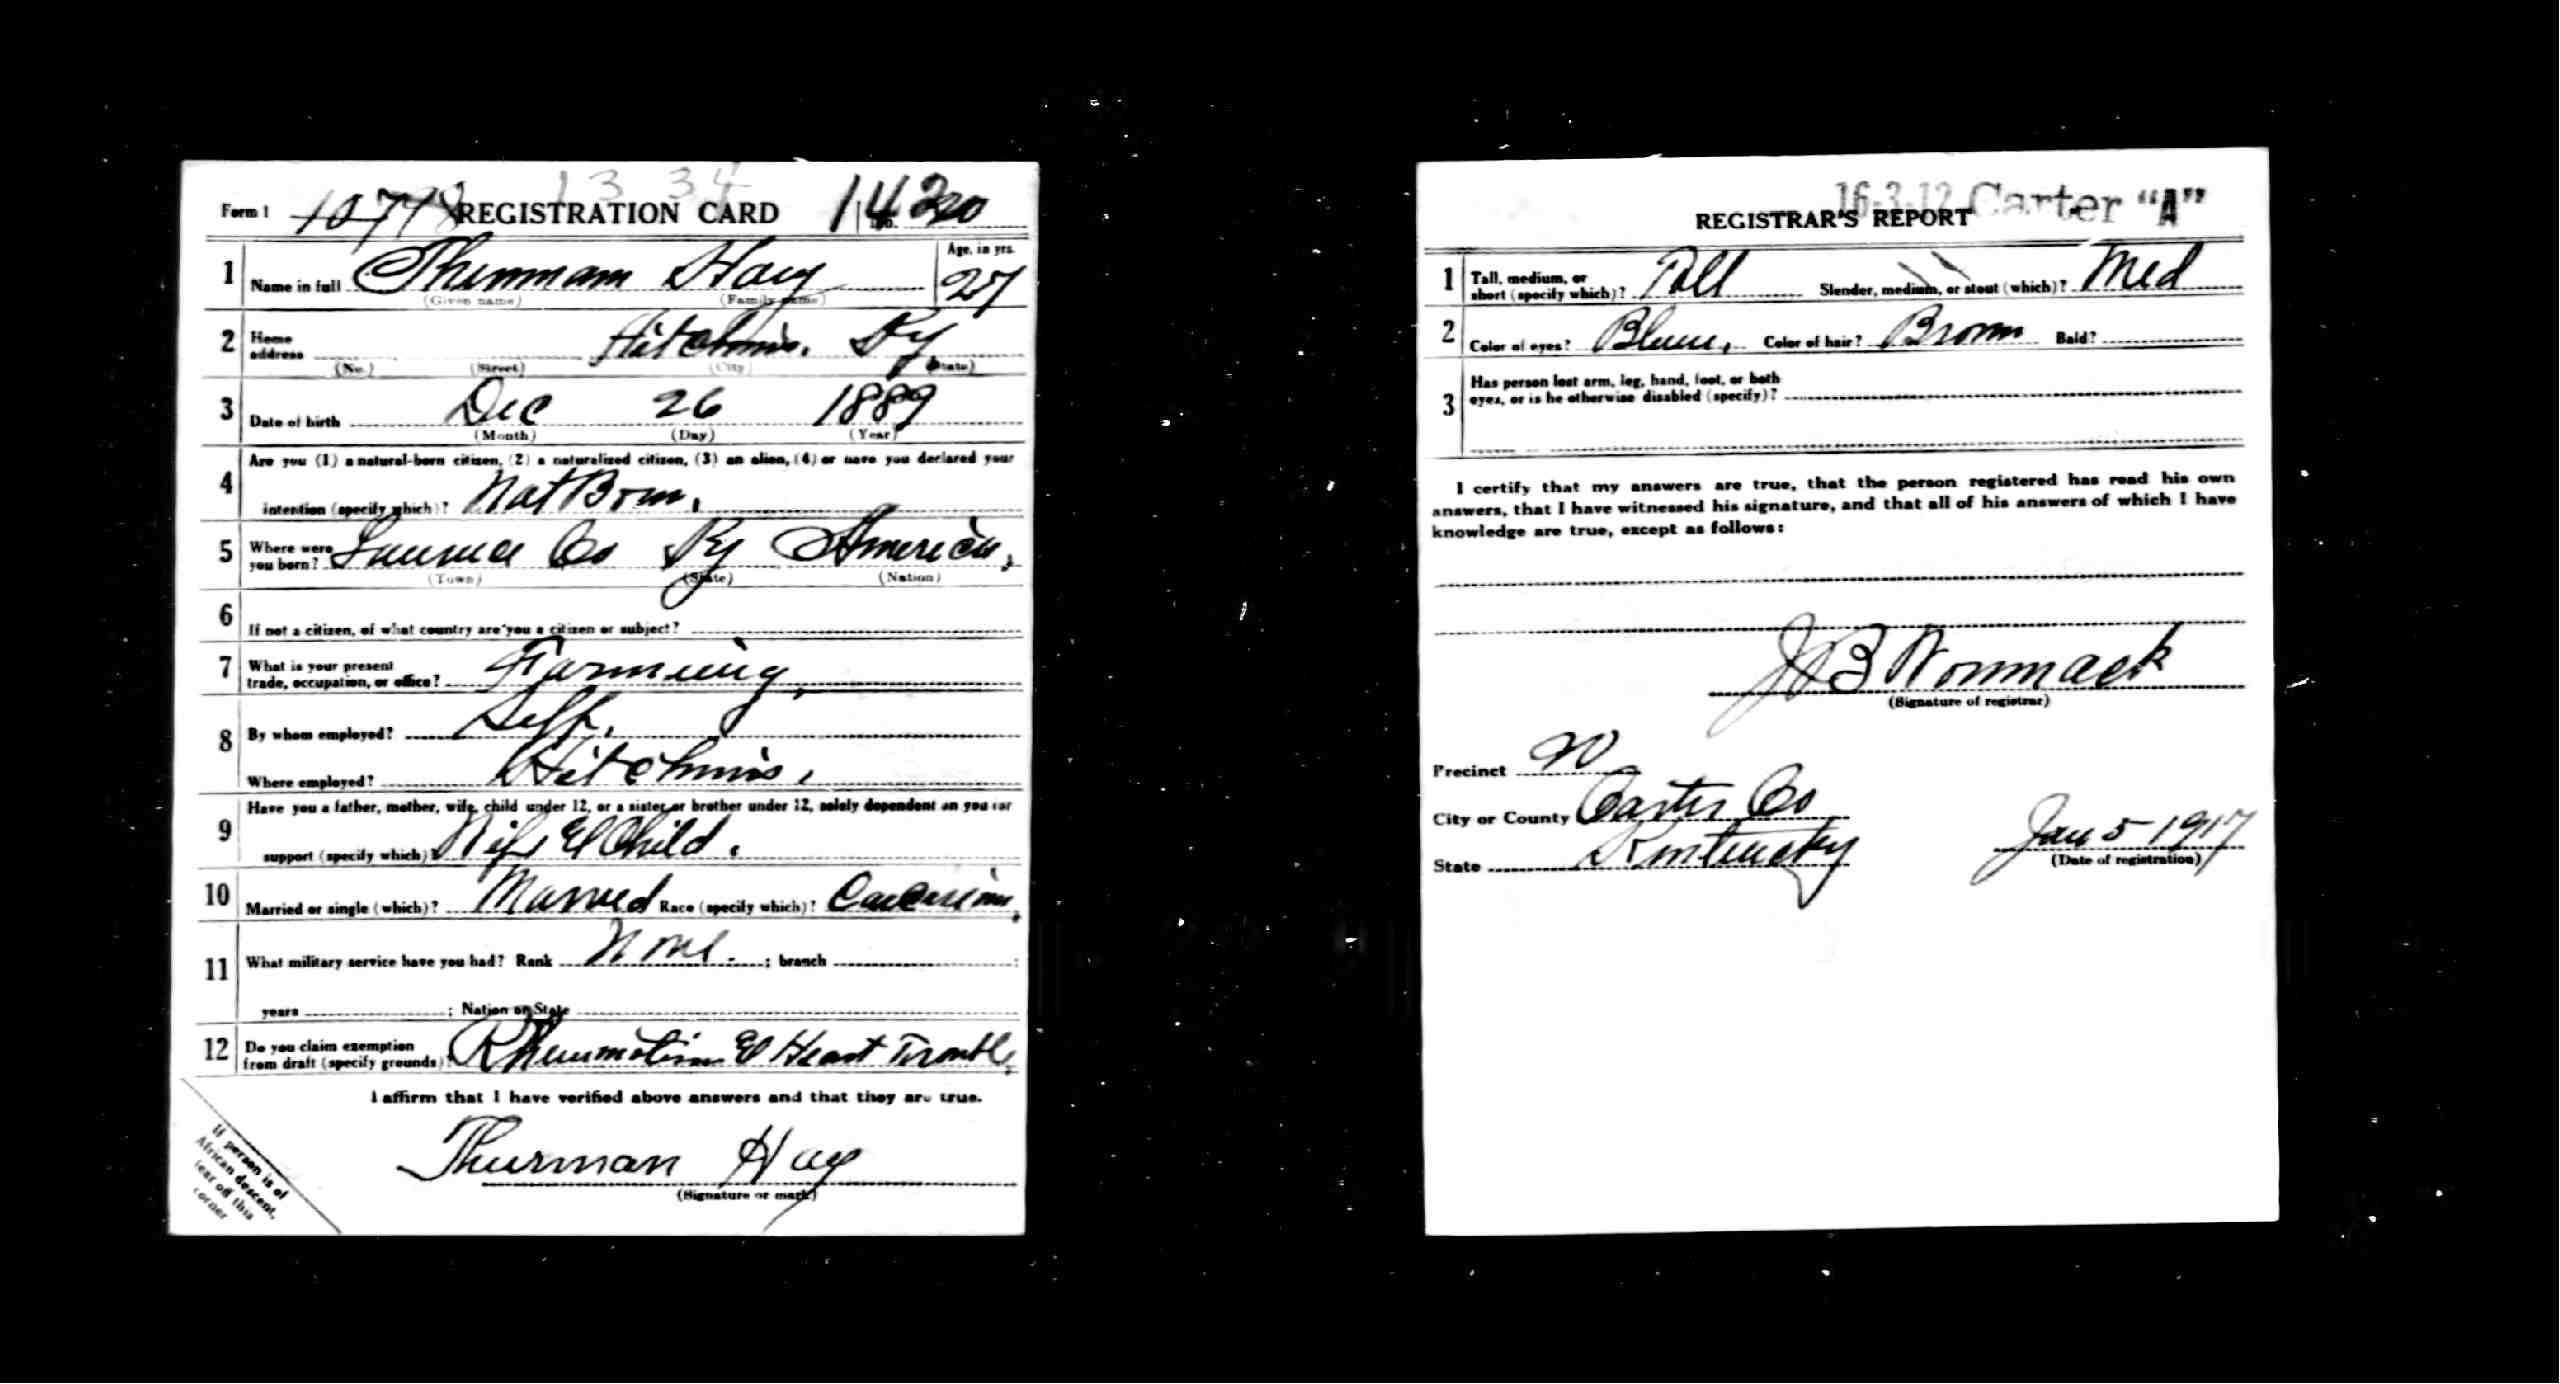 Form 1 1334
REGISTRATION CARD No.
1 Name in full Thurmam Hay Age, in yrs. 27
(Given name) (Family name)
2 Home address Hitchins. Ky
(No.) (Street) (City) (State)
3 Date of birth Dec 26 1889
(Month) (Day) (Year)
4 Are you (1) a natural-born citizen, (2) a naturalized citizen, (3) an alien, (4) or have you declared your
intention (specify which)? Nat Born.
5 Where were you born? Laurence Co Ky America,
(Town) (State) (Nation)
6 If not a citizen, of what country are you a citizen or subject?
7 What is your present
trade, occupation, or office? Farming,
8 By whom employed? Self.
Where employed? Hitchins.
9 Have you a father, mother, wife, child under 12, or a sister or brother under 12, solely dependent on you for
support (specify which)? Wife & Child.
10 Married or single (which)? Married Race (specify which)? Caucasian,
11 What military service have you had? Rank None. ; branch ;
years ; Nation or State
12 Do you claim exemption
from draft (specify grounds)? Rheumatism & Heart Trouble,
I affirm that I have verified above answers and that they are true.
Thurman Hay
(Signature or mark)
If person is of
African descent,
tear off this
corner
16-3-12 Carter "A"
REGISTRAR'S REPORT
1 Tall, medium, or
short (specify which)? Tall Slender, medium, or stout (which)? Med
2 Color of eyes? Blue, Color of hair? Brown Bald?
3 Has person lost arm, leg, hand, foot, or both
eyes, or is he otherwise disabled (specify)?
I certify that my answers are true, that the person registered has read his own
answers, that I have witnessed his signature, and that all of his answers of which I have
knowledge are true, except as follows:
J B Wommack
(Signature of registrar)
Precinct
City or County Carter Co
State Kentucky Jan 5 1917
(Date of registration)